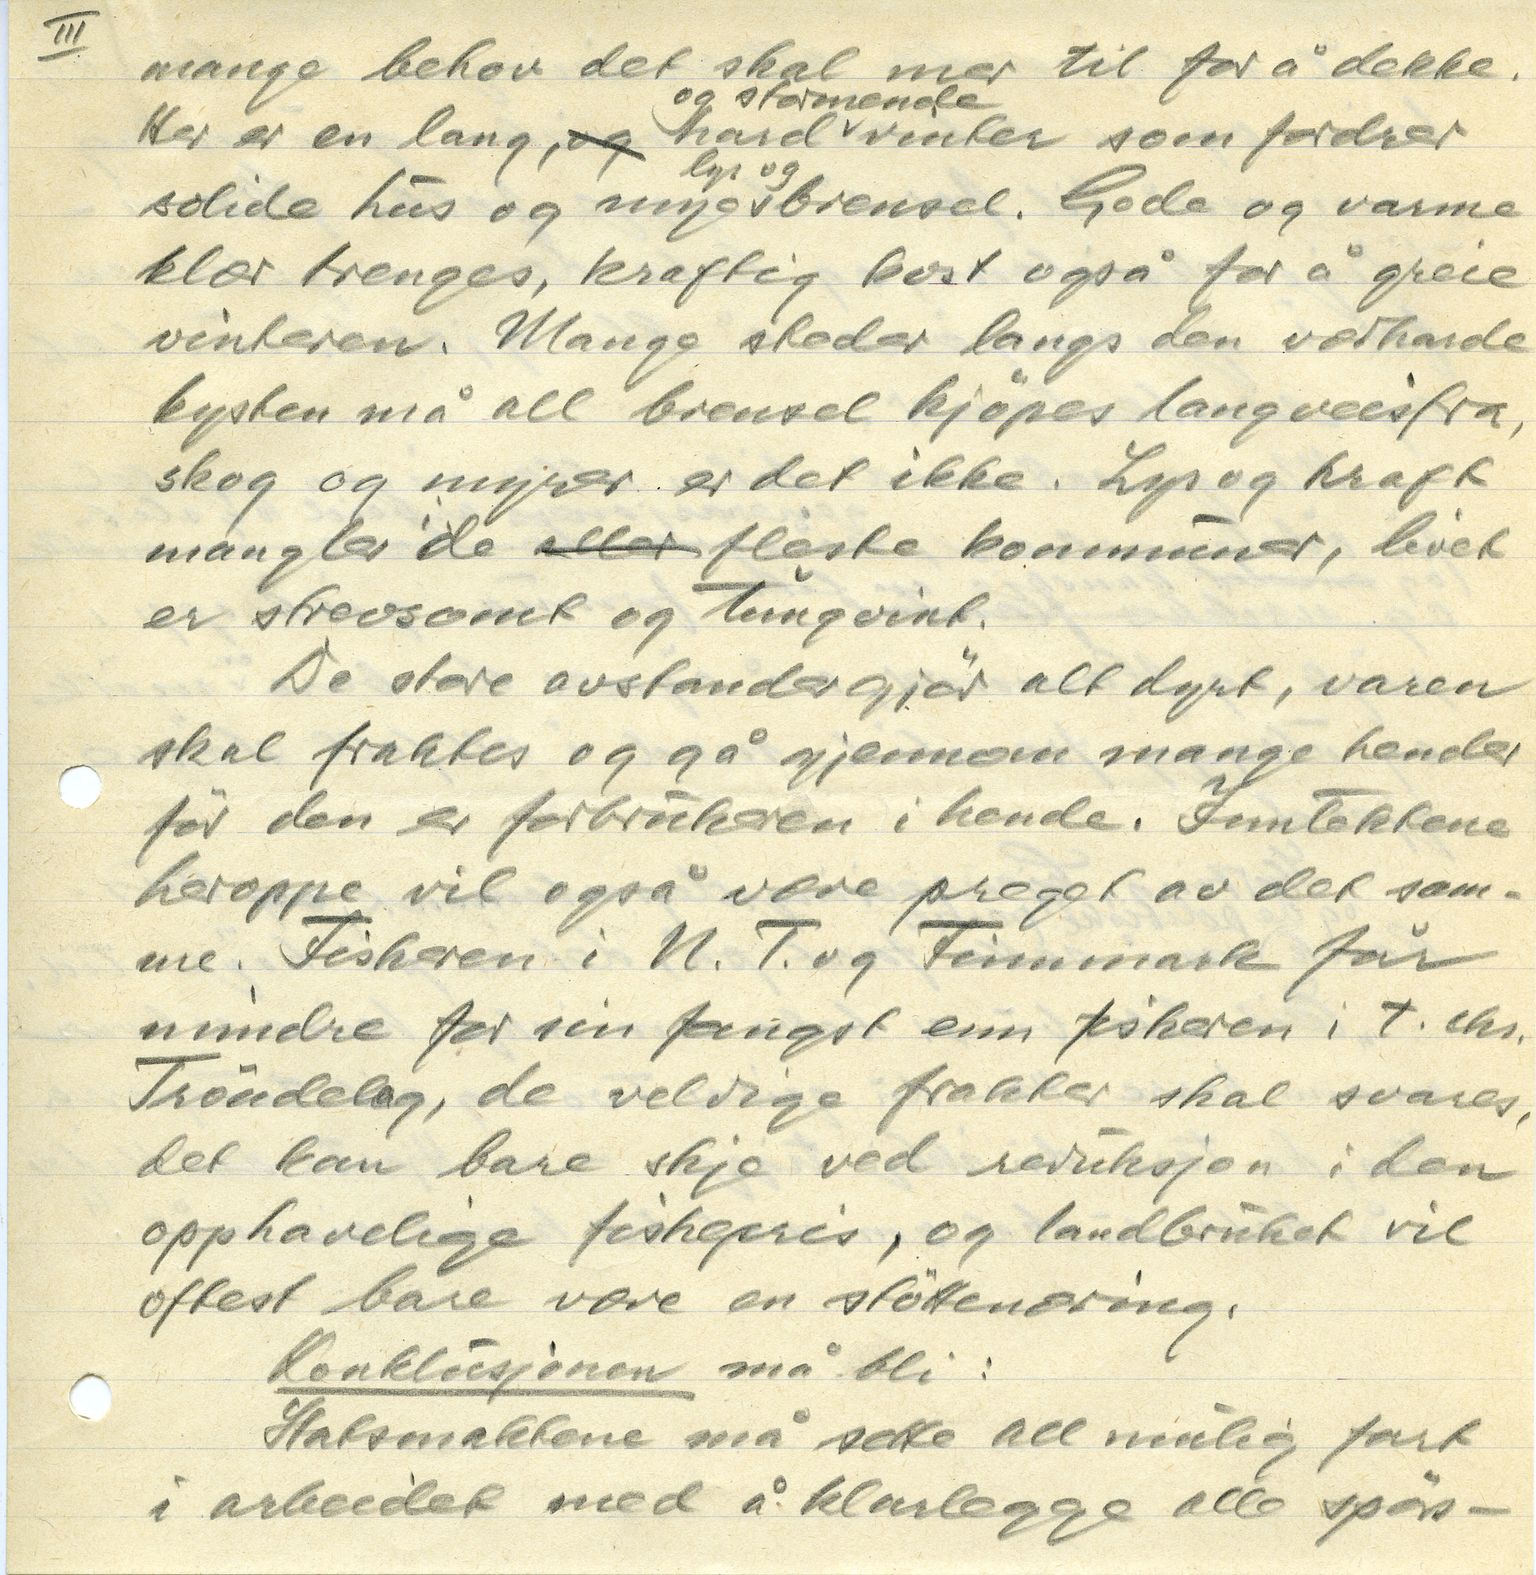 III
mange behov det skal mer til for å dekke.
og stormende
Her er en lang, og hard vinter som fordrer
lys og
solide hus og mye brensel. Gode og varme
klær trenges, kraftig kost også for å greie
vinteren. Mange steder langs den værharde
kysten må all brensel kjöpes langveisfra,
skog og myrer er det ikke. Lys og kraft
mangler de aller fleste kommuner, livet
er strevsomt og tungvint.
De store avstander gjör alt dyrt, varen
skal fraktes og gå gjennom mange hender
för den er forbrukeren i hende. Inntektene
heroppe vil også være preget av det sam-
me. Fiskeren i N. T. og Finnmark får
mindre for sin fangst enn fiskeren i t. eks.
Tröndelag, de veldige frakter skal svares,
det kan bare skje ved reduksjon i den
opphavelige fiskepris, og landbruket vil
oftest bare være en stöttenæring.
Konklusjonen må bli:
Statsmaktene må sette all mulig fart
i arbeidet med å klarlegge alle spörs-